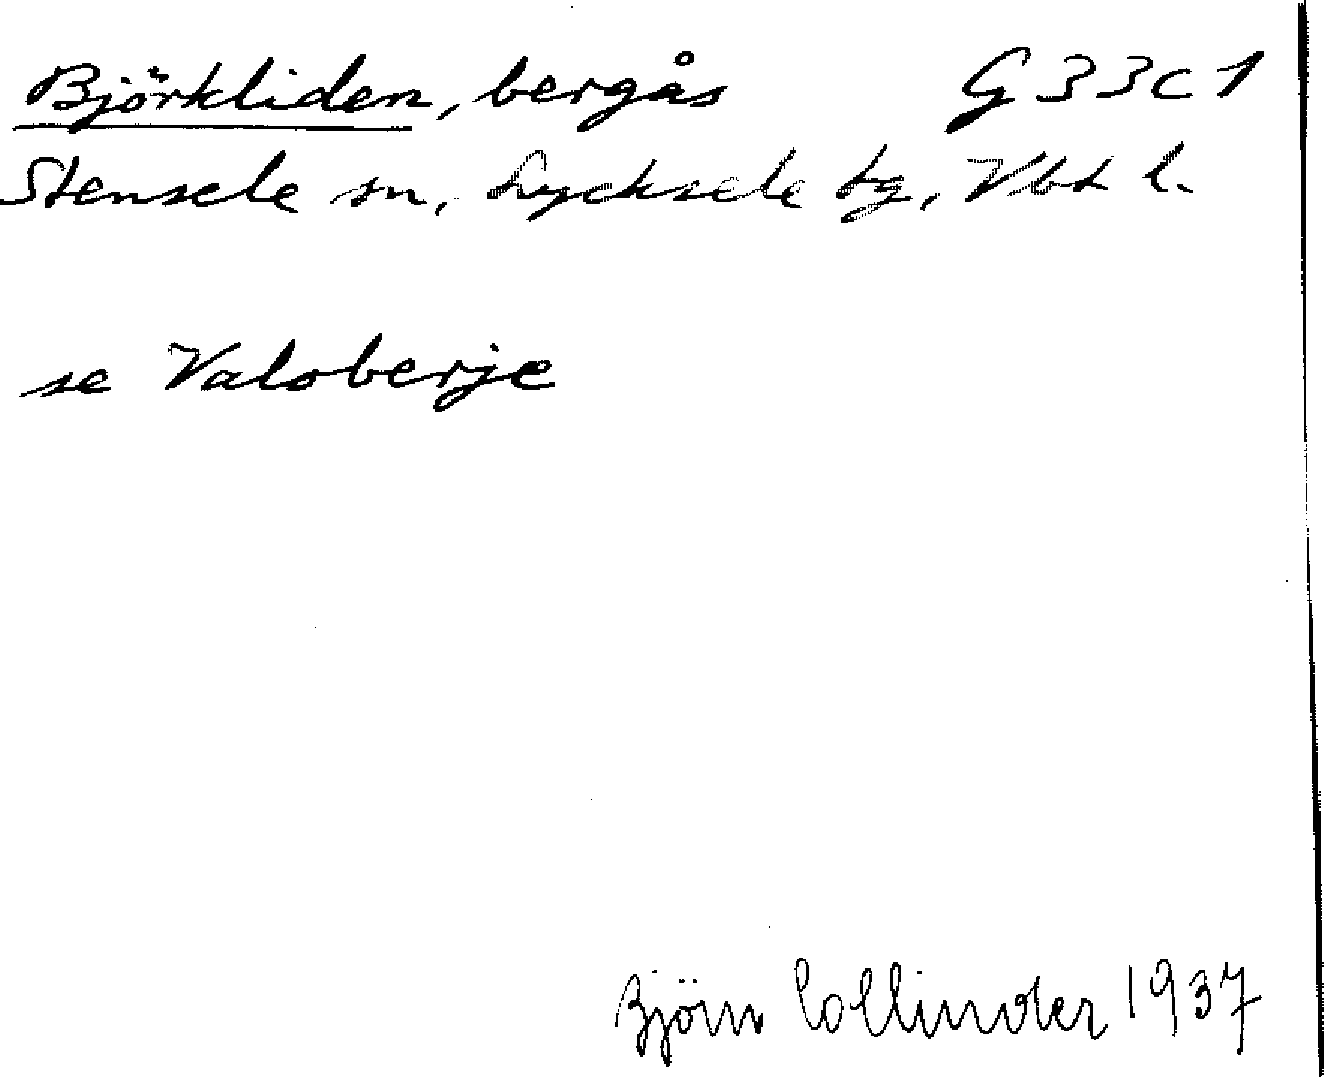 Björkliden, bergås G 33 c 1
Stensele sn, Lycksele tg, Vbt l.
se Valoberje
Björn Collinder 1937